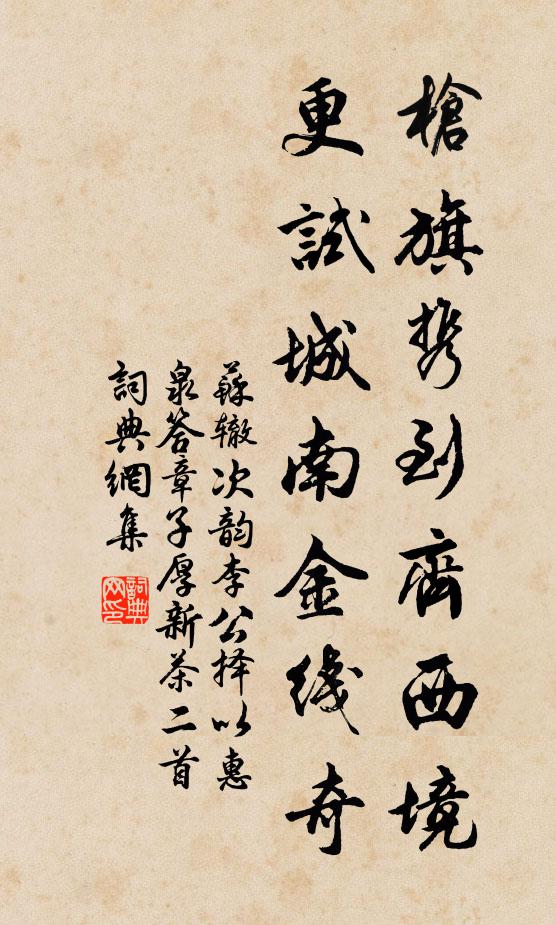 槍旗携到齊西境
更試城南金綫奇
蘇辙次韵李公择以惠
泉答章子厚新茶二首
詞典網集
詞典
网印